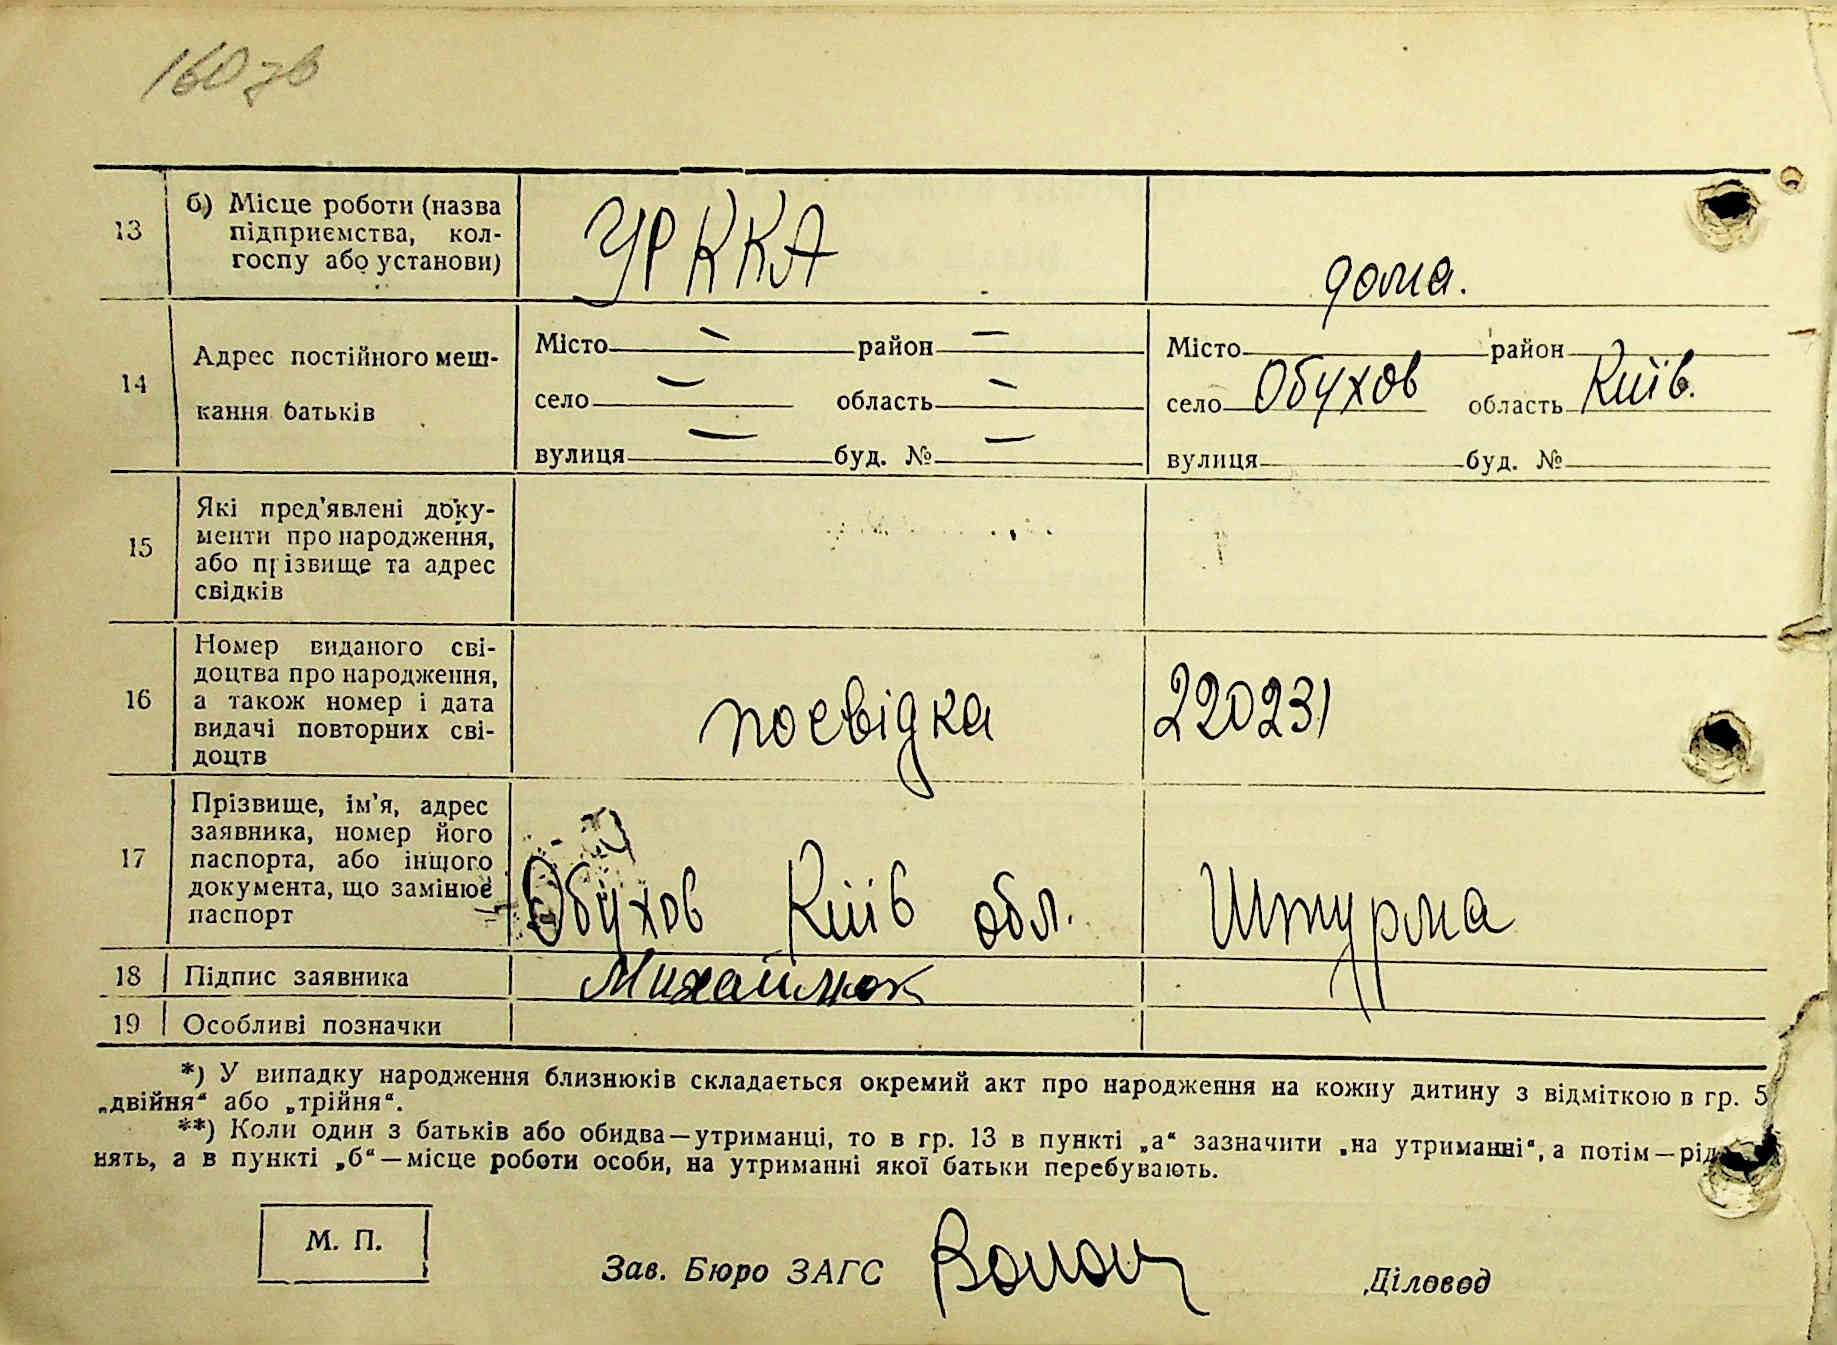 160 зв
13
б) Місце роботи (назва
підприємства, кол-
госпу або установи)
УРККА
дома.
14
Адрес постійного меш-
кання батьків
Місто район
село область
вулиця буд. №
Місто район
село Обухов область Київ.
вулиця буд. №
15
Які пред'явлені доку-
менти про народження,
або прізвище та адрес
свідків
16
Номер виданого сві-
доцтва про народження,
а також номер і дата
видачі повторних сві-
доцтв
посвідка
220231
17
Прізвище, ім'я, адрес
заявника, номер його
паспорта, або іншого
документа, що замінює
паспорт
Обухов Київ обл. Штурма
18 Підпис заявника Михайлюк
19 Особливі позначки
*) У випадку народження близнюків складається окремий акт про народження на кожну дитину з відміткою в гр. 5
„двійня“ або „трійня“.
**) Коли один з батьків або обидва—утриманці, то в гр. 13 в пункті „а“ зазначити „на утриманні“, а потім—рід
нять, а в пункті „б“—місце роботи особи, на утриманні якої батьки перебувають.
М. П.
Зав. Бюро ЗАГС
Діловод